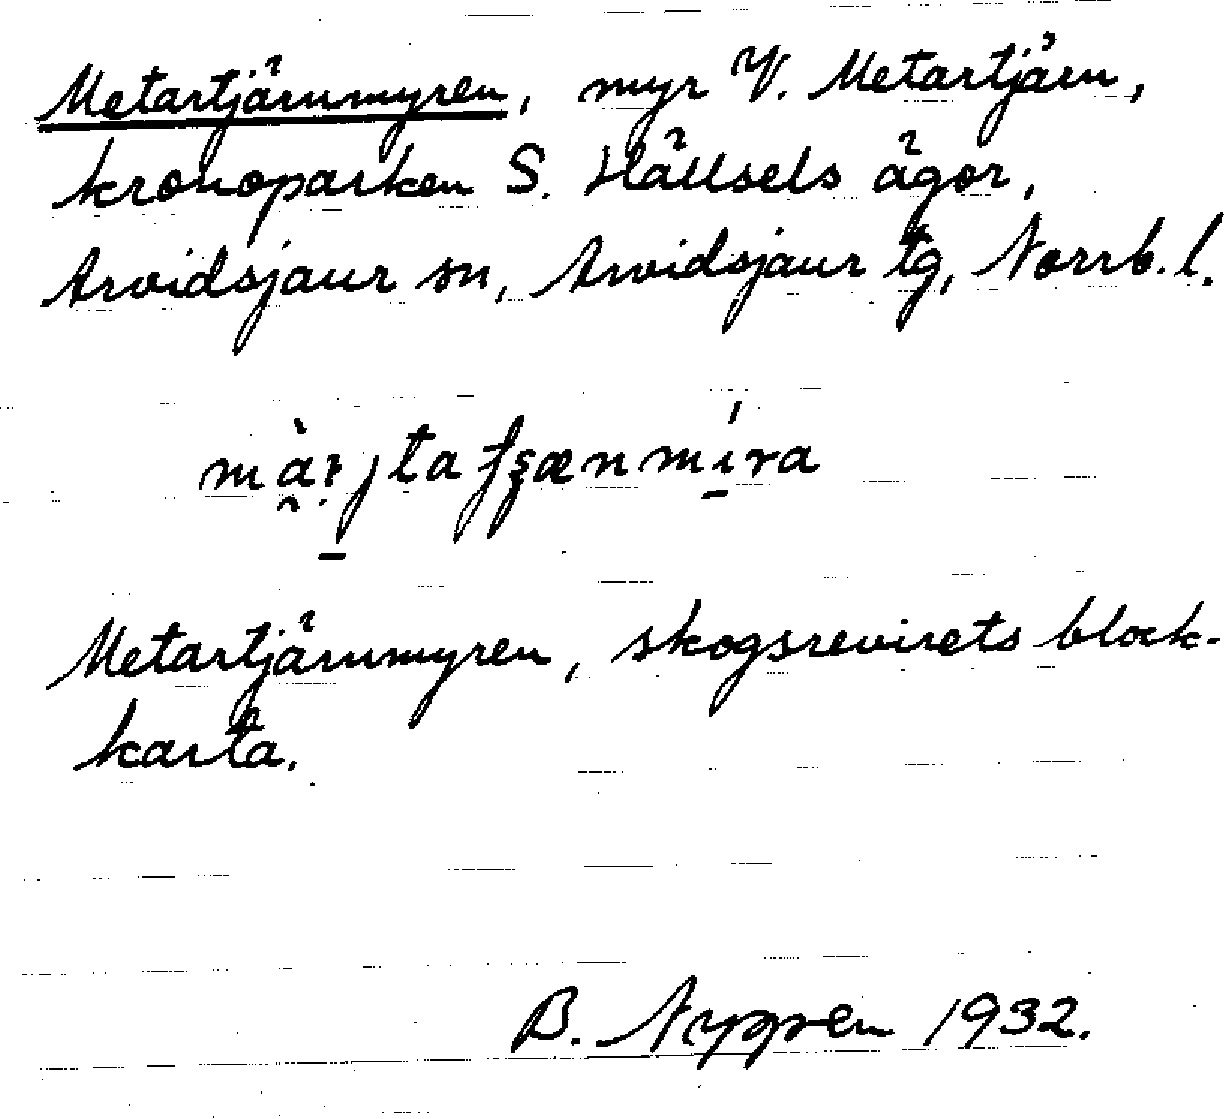 Metartjärnmyren, myr V. Metartjärn,
kronoparken S. Hällsels ägor,
Arvidsjaur sn, Arvidsjaur tg, Norrb. l.
Metartjärnmyren, skogsrevirets block-
karta.
B. 1932.